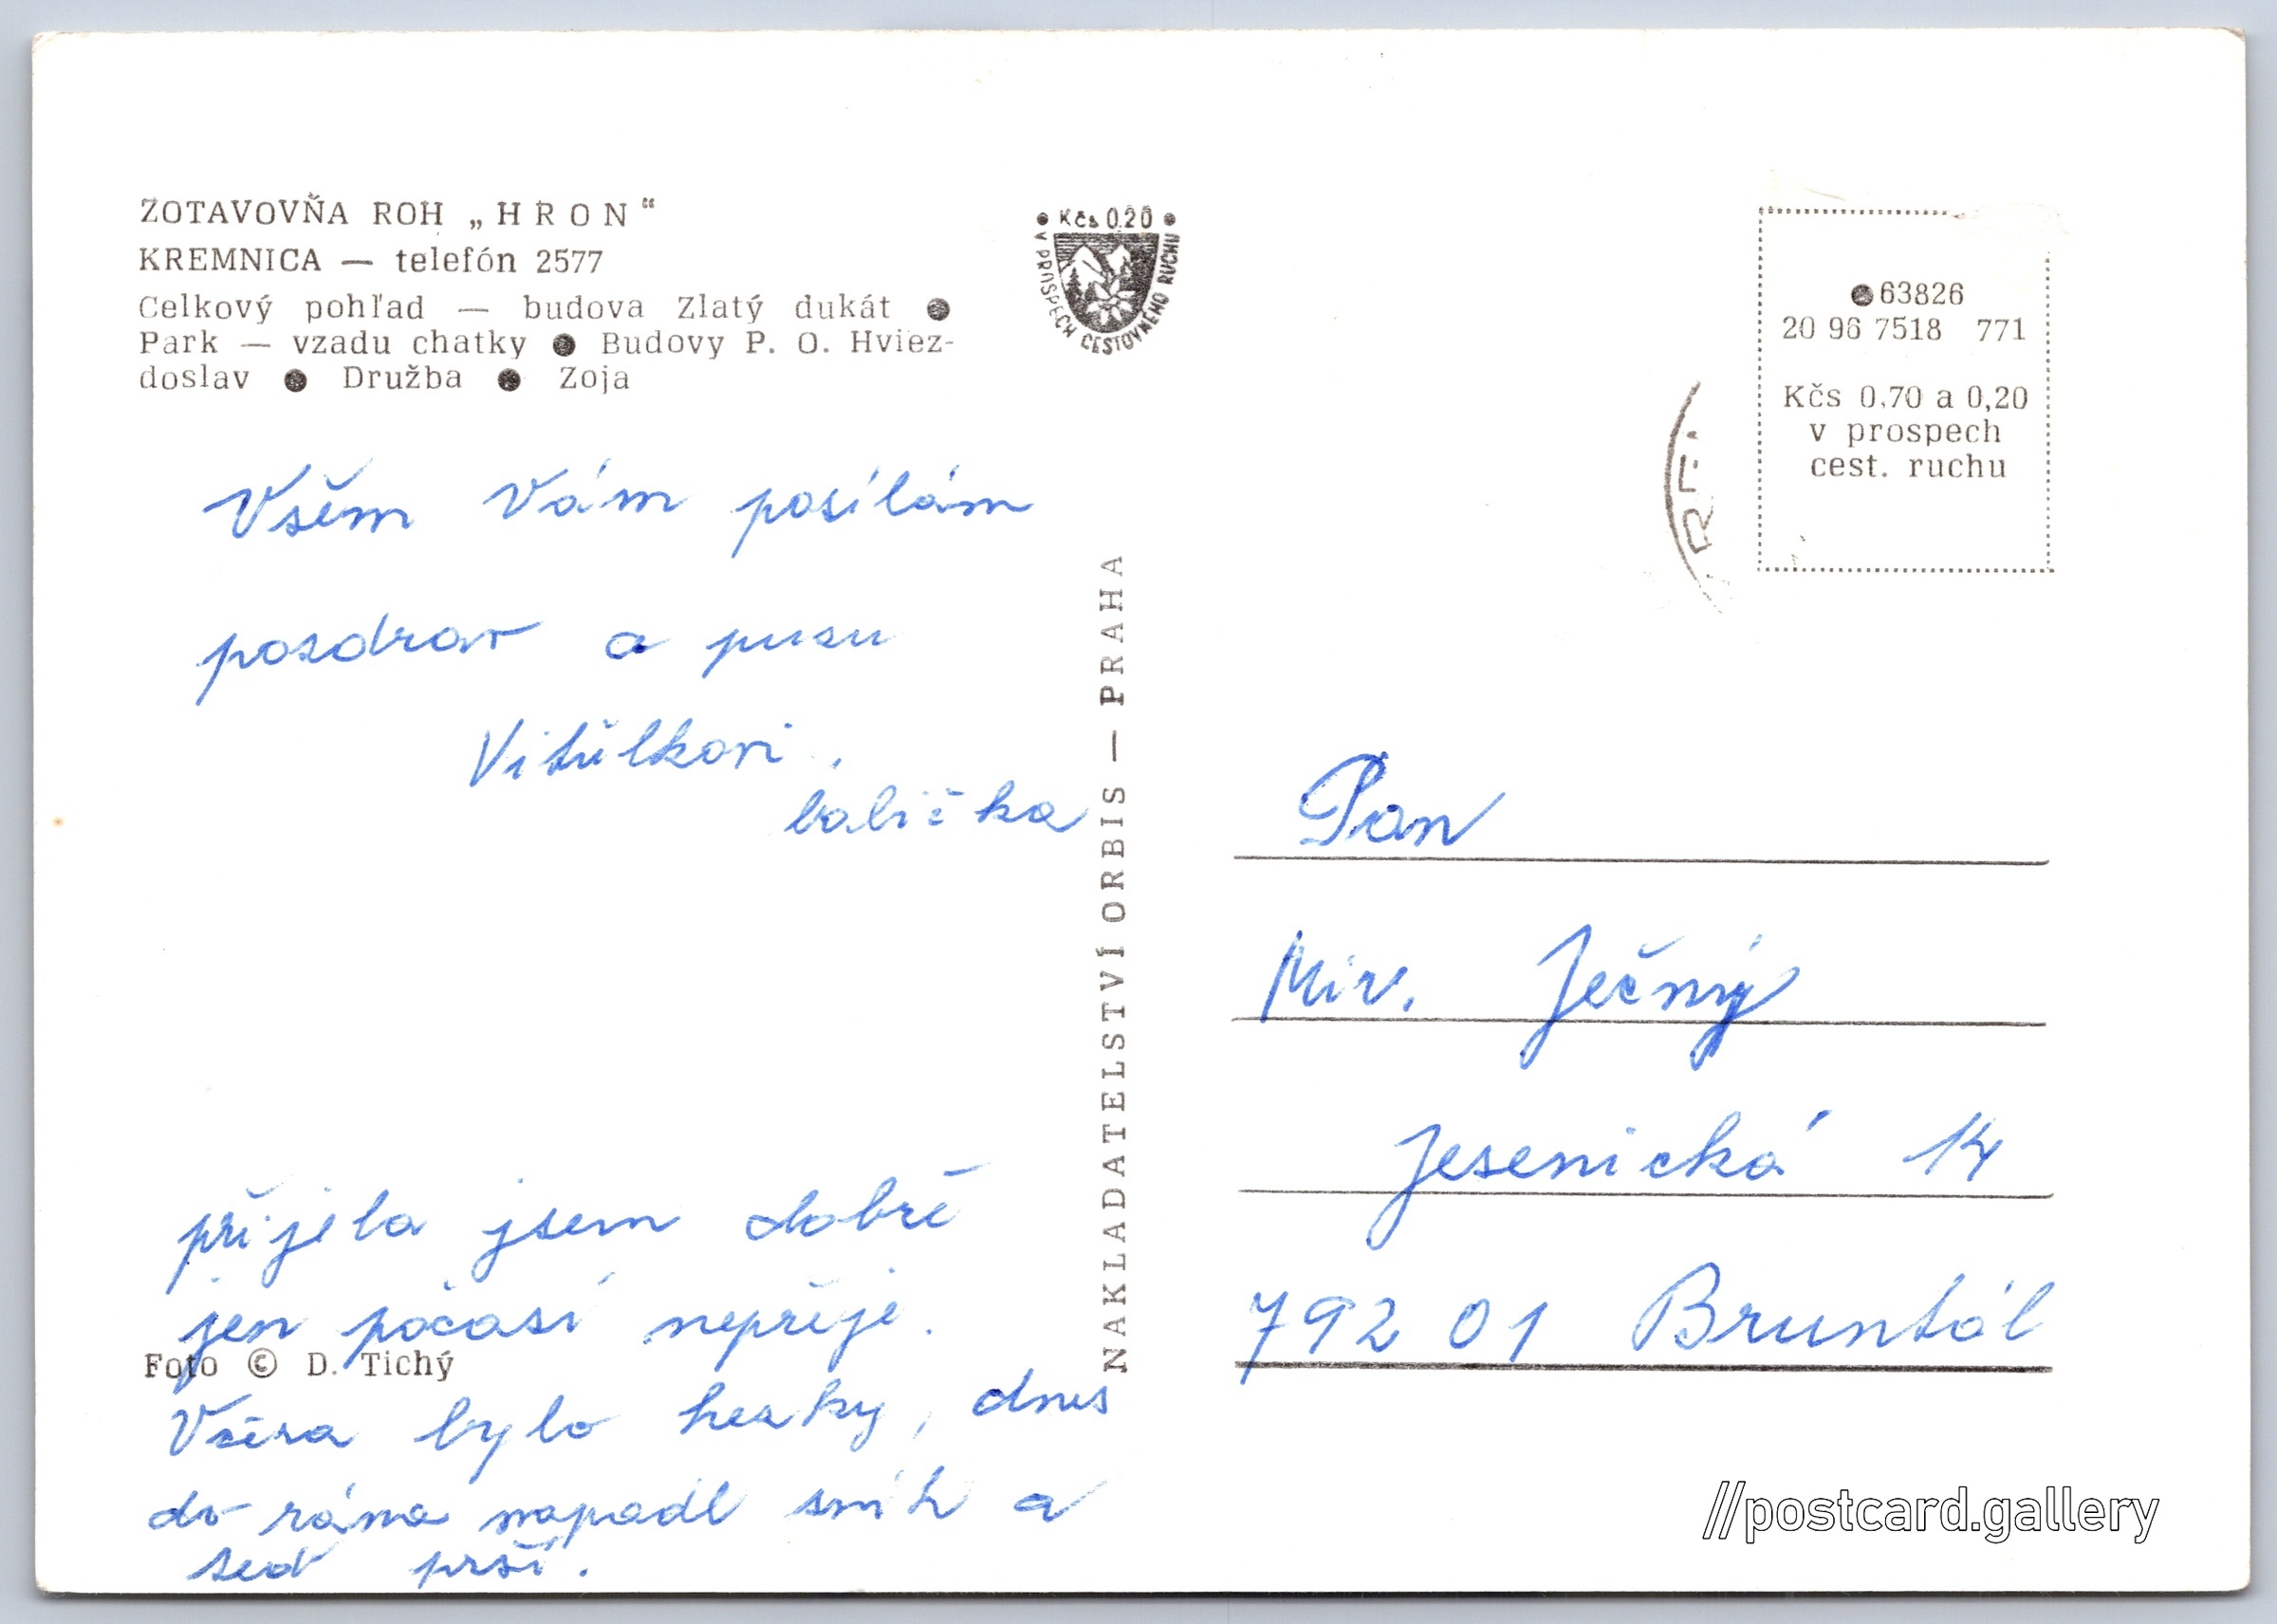 ZOTAVOVŇA ROH „HRON“
KREMNICA — telefón 2577
Celkový pohľad — budova Zlatý dukát ●
Park — vzadu chatky ● Budovy P. O. Hviez-
doslav ● Družba ● Zoja
● Kčs 0.20 ●
V PROSPECH CESTOVNÉHO RUCHU
●63826
20 96 7518 771
Kčs 0,70 a 0,20
v prospech
cest. ruchu
Všem Vám posílám
pozdrav a pusu
Vitůlkovi.
babička
přijela jsem dobře
jen počasí nepřeje.
Foto © D. Tichý
Včera bylo hezky, dnes
do rána napadl sníh a
teď prší.
NAKLADATELSTVÍ ORBIS — PRAHA
Pan
Mir. Ječný
Jesenická 14
792 01 Bruntál
//postcard.gallery